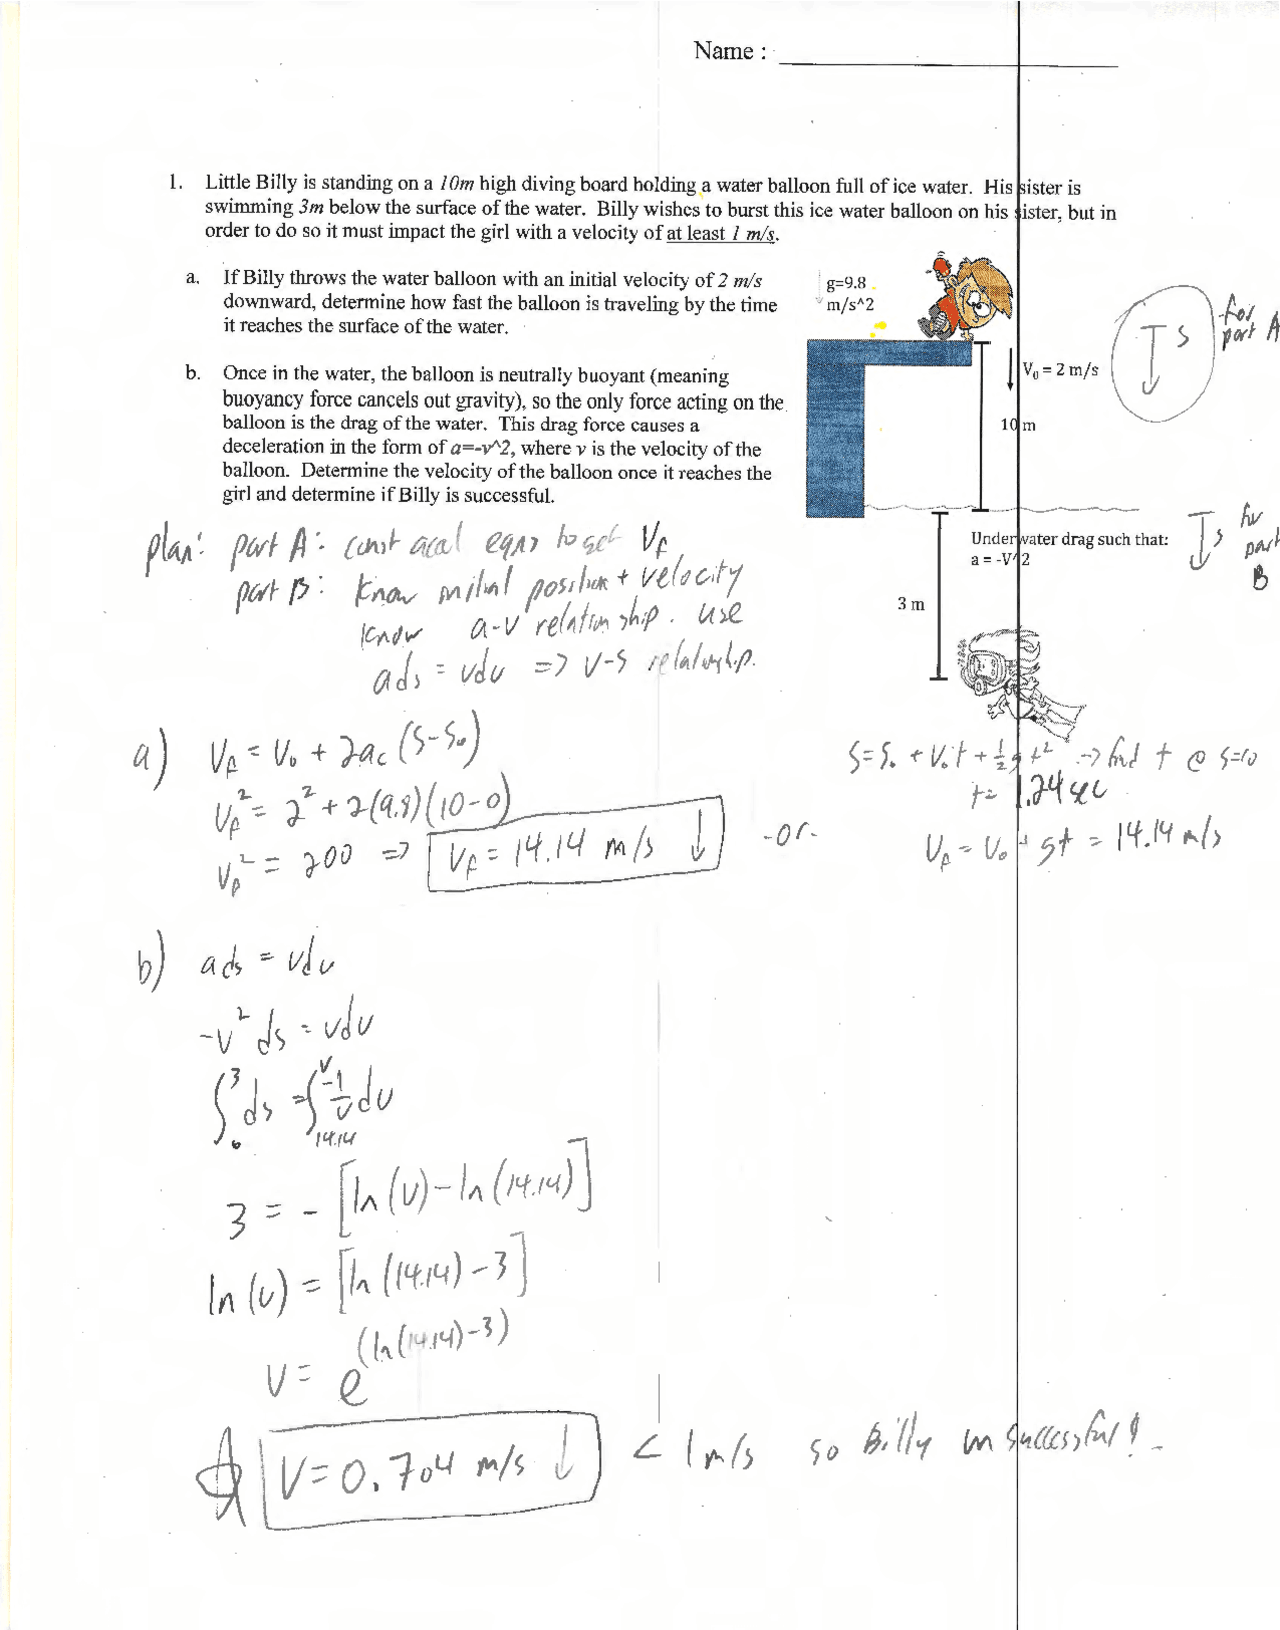 Name : ____________________
1. Little Billy is standing on a 10m high diving board holding a water balloon full of ice water. His sister is
swimming 3m below the surface of the water. Billy wishes to burst this ice water balloon on his sister, but in
order to do so it must impact the girl with a velocity of at least 1 m/s.
a. If Billy throws the water balloon with an initial velocity of 2 m/s
downward, determine how fast the balloon is traveling by the time
it reaches the surface of the water.
g=9.8
m/s^2
b. Once in the water, the balloon is neutrally buoyant (meaning
buoyancy force cancels out gravity), so the only force acting on the
balloon is the drag of the water. This drag force causes a
deceleration in the form of a=-v^2, where v is the velocity of the
balloon. Determine the velocity of the balloon once it reaches the
girl and determine if Billy is successful.
V₀ = 2 m/s
10 m
↓ S for
part A
Underwater drag such that:
a = -V^2
3 m
↓ s for
part
B
plan: part A: const accel eqns to get Vf
part B: know initial position + velocity
know a-v relationship. use
ads = vdv => v-s relationship.
a) Vf = V₀ + 2ac (S-S₀)
Vf² = 2² + 2(9.8)(10-0)
Vf² = 200 => Vf = 14.14 m/s ↓
-or-
S=S₀ + V₀t + ½gt² -> find t @ S=10
t= 1.24 sec
Vf = V₀ + gt = 14.14 m/s
b) ads = vdv
-v² ds = vdv
∫₀³ ds = ∫₁₄.₁₄ᵛ -1/v dv
3 = - [ln(v) - ln(14.14)]
ln(v) = [ln(14.14) - 3]
v = e^(ln(14.14)-3)
V=0.704 m/s ↓ < 1 m/s so Billy unsuccessful!